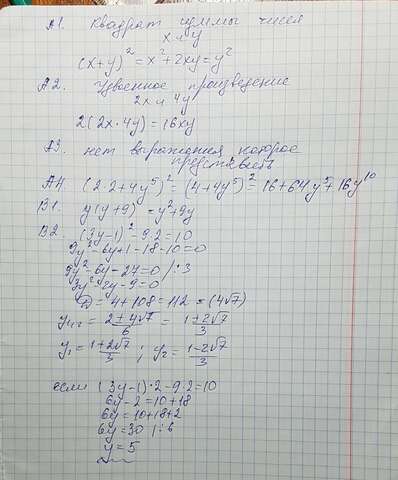 А1. Квадрат суммы чисел
x и y
(x+y)² = x²+2xy=y²
А2. Удвоенное произведение
2x и 4y
2(2x·4y)=16xy
А3. нет выражения которое
представить
А4 (2·2+4y⁵)²=(4+4y⁵)²=16+64y⁵+16y¹⁰
В1. y(y+9)=y²+9y
В2. (3y-1)²-9·2=10
9y²-6y+1-18-10=0
9y²-6y-27=0 /:3
3y²-2y-9=0
D=4+108=112=(4√7)
y₁,₂ = 2±4√7/6 = 1±2√7/3
y₁=1+2√7/3; y₂=1-2√7/3
если (3y-1)·2-9·2=10
6y-2=10+18
6y=10+18+2
6y=30 /:6
y=5